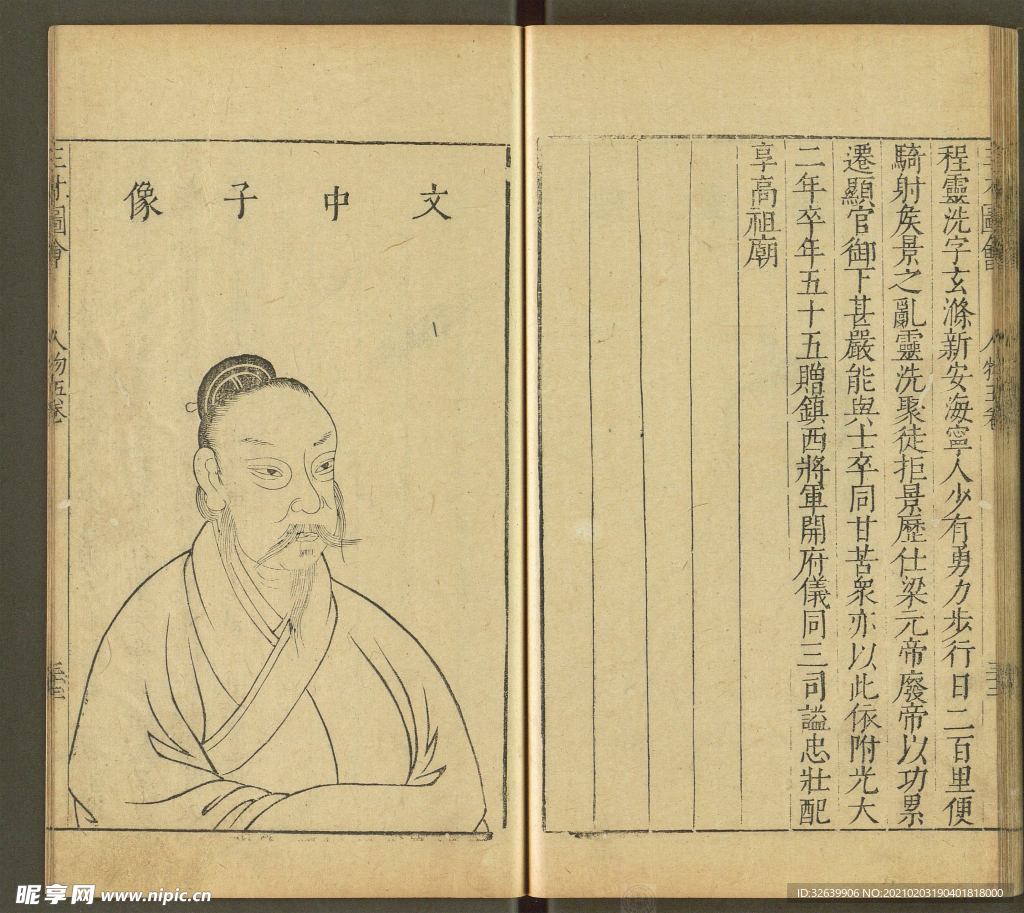 三才圖會
人物五卷
三十二
程靈洗字玄滌新安海寧人少有勇力步行日二百里便
騎射矦景之亂靈洗聚徒拒景歷仕梁元帝廢帝以功累
遷顯官御下甚嚴能與士卒同甘苦衆亦以此依附光大
二年卒年五十五贈鎮西將軍開府儀同三司謚忠壯配
享高祖廟
文中子像
三才圖會
人物五卷
三十三
昵享网 www.nipic.cn
ID:32639906 NO:20210203190401818000